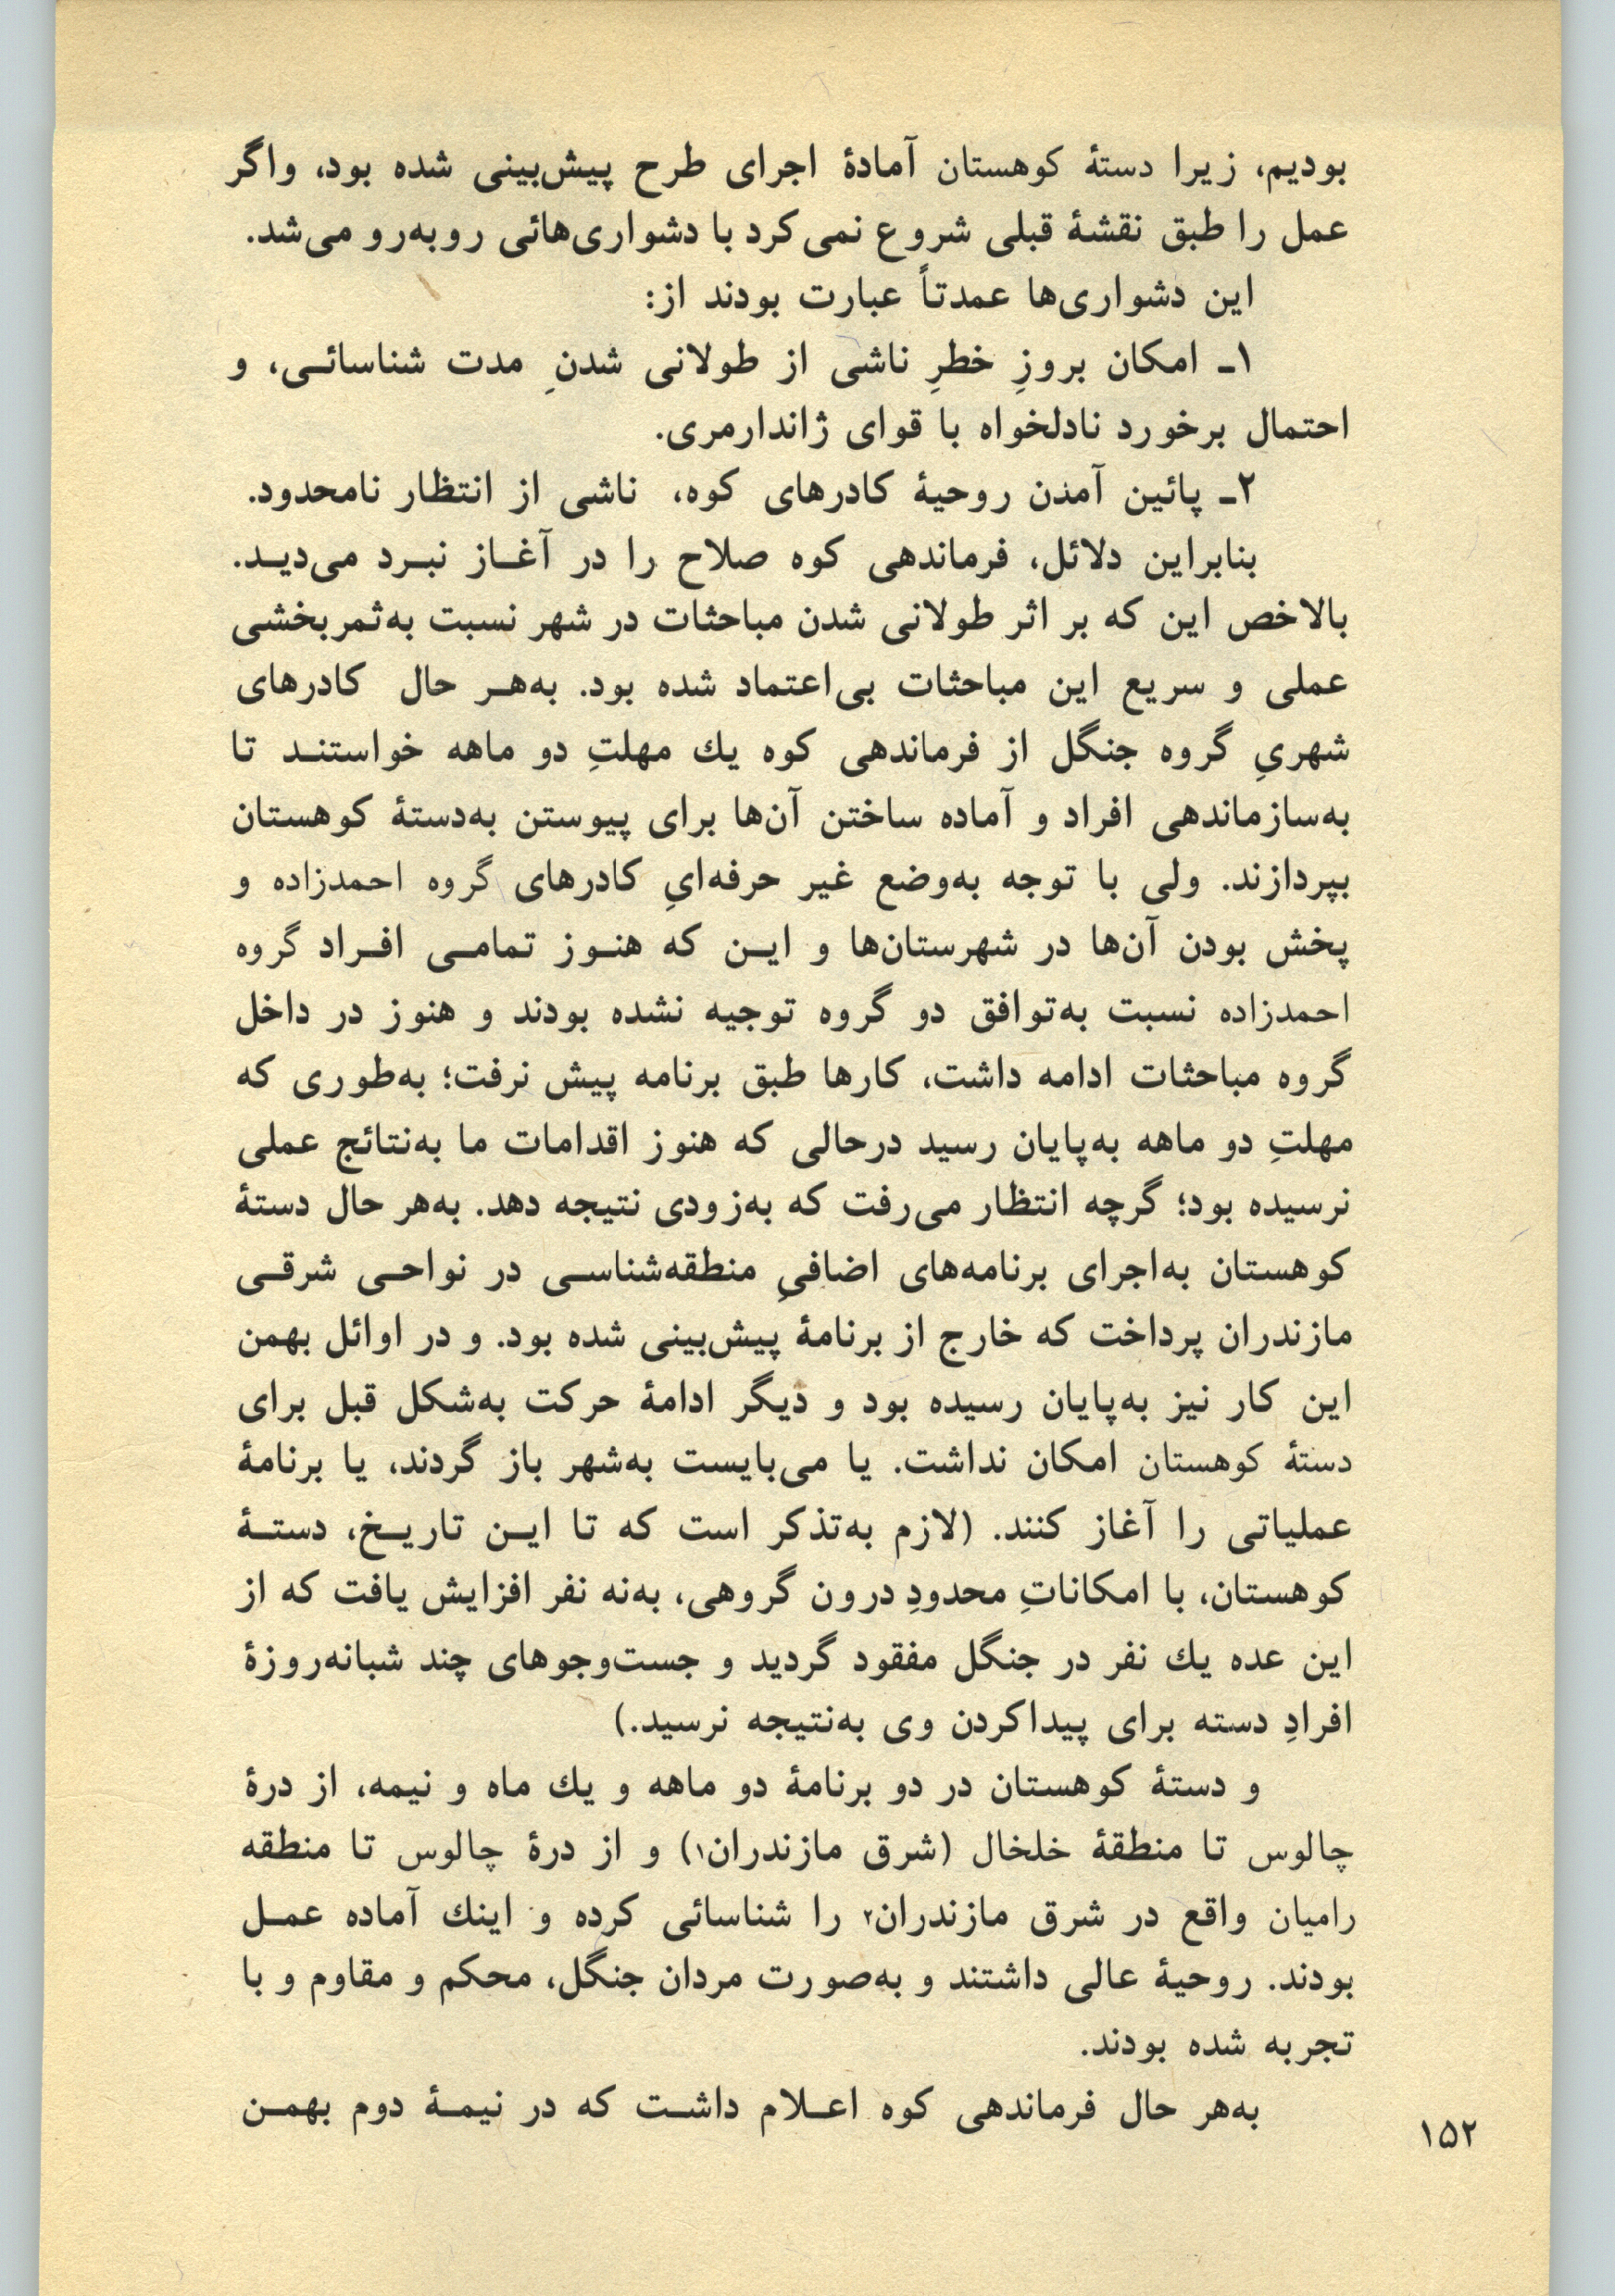 بودیم، زیرا دستهٔ کوهستان آمادهٔ اجرای طرح پیش‌بینی شده بود، واگر
عمل را طبق نقشهٔ قبلی شروع نمی‌کرد با دشواری‌هائی روبه‌رو می‌شد.
این دشواری‌ها عمدتاً عبارت بودند از:
۱ـ امکان بروزِ خطرِ ناشی از طولانی شدنِ مدت شناسائـی، و
احتمال برخورد نادلخواه با قوای ژاندارمری.
۲ـ پائین آمدن روحیهٔ کادرهای کوه، ناشی از انتظار نامحدود.
بنابراین دلائل، فرماندهی کوه صلاح را در آغـاز نبـرد می‌دیـد.
بالاخص این که بر اثر طولانی شدن مباحثات در شهر نسبت به‌ثمربخشی
عملی و سریع این مباحثات بی‌اعتماد شده بود. به‌هـر حال کادرهای
شهریِ گروه جنگل از فرماندهی کوه یك مهلتِ دو ماهه خواستنـد تا
به‌سازماندهی افراد و آماده ساختن آن‌ها برای پیوستن به‌دستهٔ کوهستان
بپردازند. ولی با توجه به‌وضع غیر حرفه‌ایِ کادرهای گروه احمدزاده و
پخش بودن آن‌ها در شهرستان‌ها و ایـن که هنـوز تمامـی افـراد گروه
احمدزاده نسبت به‌توافق دو گروه توجیه نشده بودند و هنوز در داخل
گروه مباحثات ادامه داشت، کارها طبق برنامه پیش نرفت؛ به‌طوری که
مهلتِ دو ماهه به‌پایان رسید درحالی که هنوز اقدامات ما به‌نتائج عملی
نرسیده بود؛ گرچه انتظار می‌رفت که به‌زودی نتیجه دهد. به‌هر حال دستهٔ
کوهستان به‌اجرای برنامه‌های اضافیِ منطقه‌شناسـی در نواحـی شرقـی
مازندران پرداخت که خارج از برنامهٔ پیش‌بینی شده بود. و در اوائل بهمن
این کار نیز به‌پایان رسیده بود و دیگر ادامهٔ حرکت به‌شکل قبل برای
دستهٔ کوهستان امکان نداشت. یا می‌بایست به‌شهر باز گردند، یا برنامهٔ
عملیاتی را آغاز کنند. (لازم به‌تذکر است که تا ایـن تاریـخ، دستـهٔ
کوهستان، با امکاناتِ محدودِ درون گروهی، به‌نه نفر افزایش یافت که از
این عده یك نفر در جنگل مفقود گردید و جست‌وجوهای چند شبانه‌روزهٔ
افرادِ دسته برای پیداکردن وی به‌نتیجه نرسید.)
و دستهٔ کوهستان در دو برنامهٔ دو ماهه و یك ماه و نیمه، از درهٔ
چالوس تا منطقهٔ خلخال (شرق مازندران۱) و از درهٔ چالوس تا منطقه
رامیان واقع در شرق مازندران۲ را شناسائی کرده و اینك آماده عمـل
بودند. روحیهٔ عالی داشتند و به‌صورت مردان جنگل، محکم و مقاوم و با
تجربه شده بودند.
به‌هر حال فرماندهی کوه اعـلام داشـت که در نیمـهٔ دوم بهمـن
۱۵۲